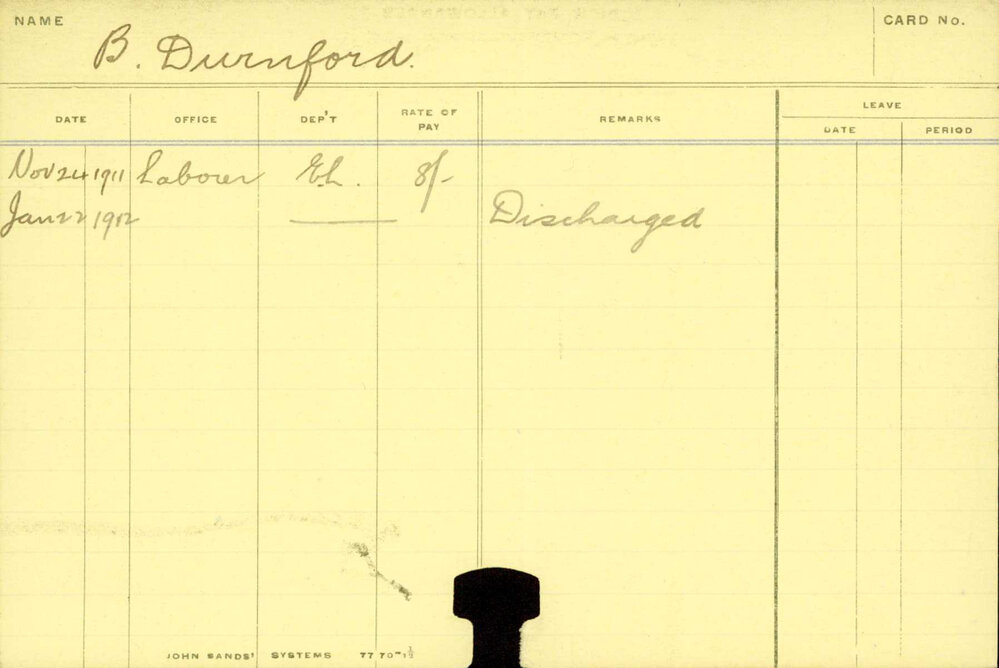 NAME
CARD No.
B. Durnford.
LEAVE
DATE OFFICE DEP'T RATE OF PAY REMARKS DATE PERIOD
Nov 24 1911 Laborer E.L. 8/-
Jan 22 1912 Discharged
JOHN SANDS' SYSTEMS 7770-1½